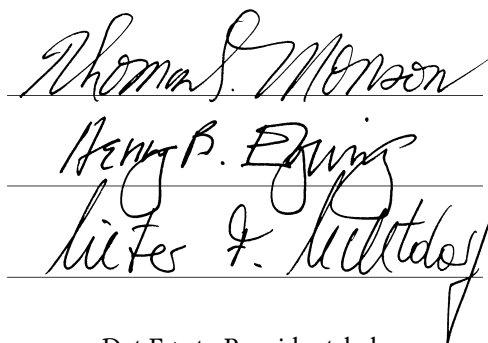 Thomas S. Monson
Henry B. Eyring
Dieter F. Uchtdorf
Det Første Presidentskap